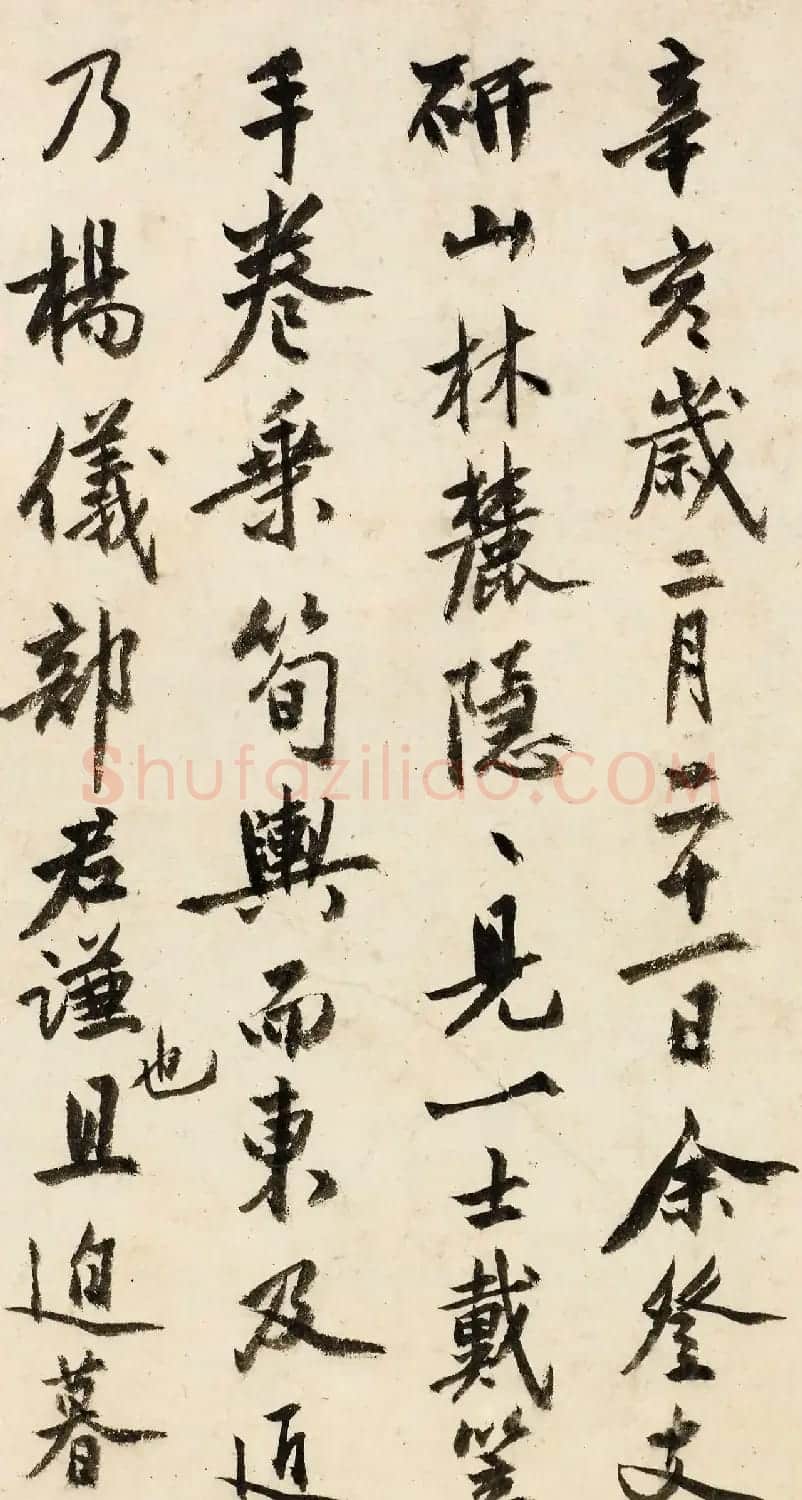 辛亥歲二月二十一日余登支
研山林麓隱、見一士戴笠
手卷乗筍輿而東及近
乃楊儀部君謙也且迫暮
Shufaziliao.COM